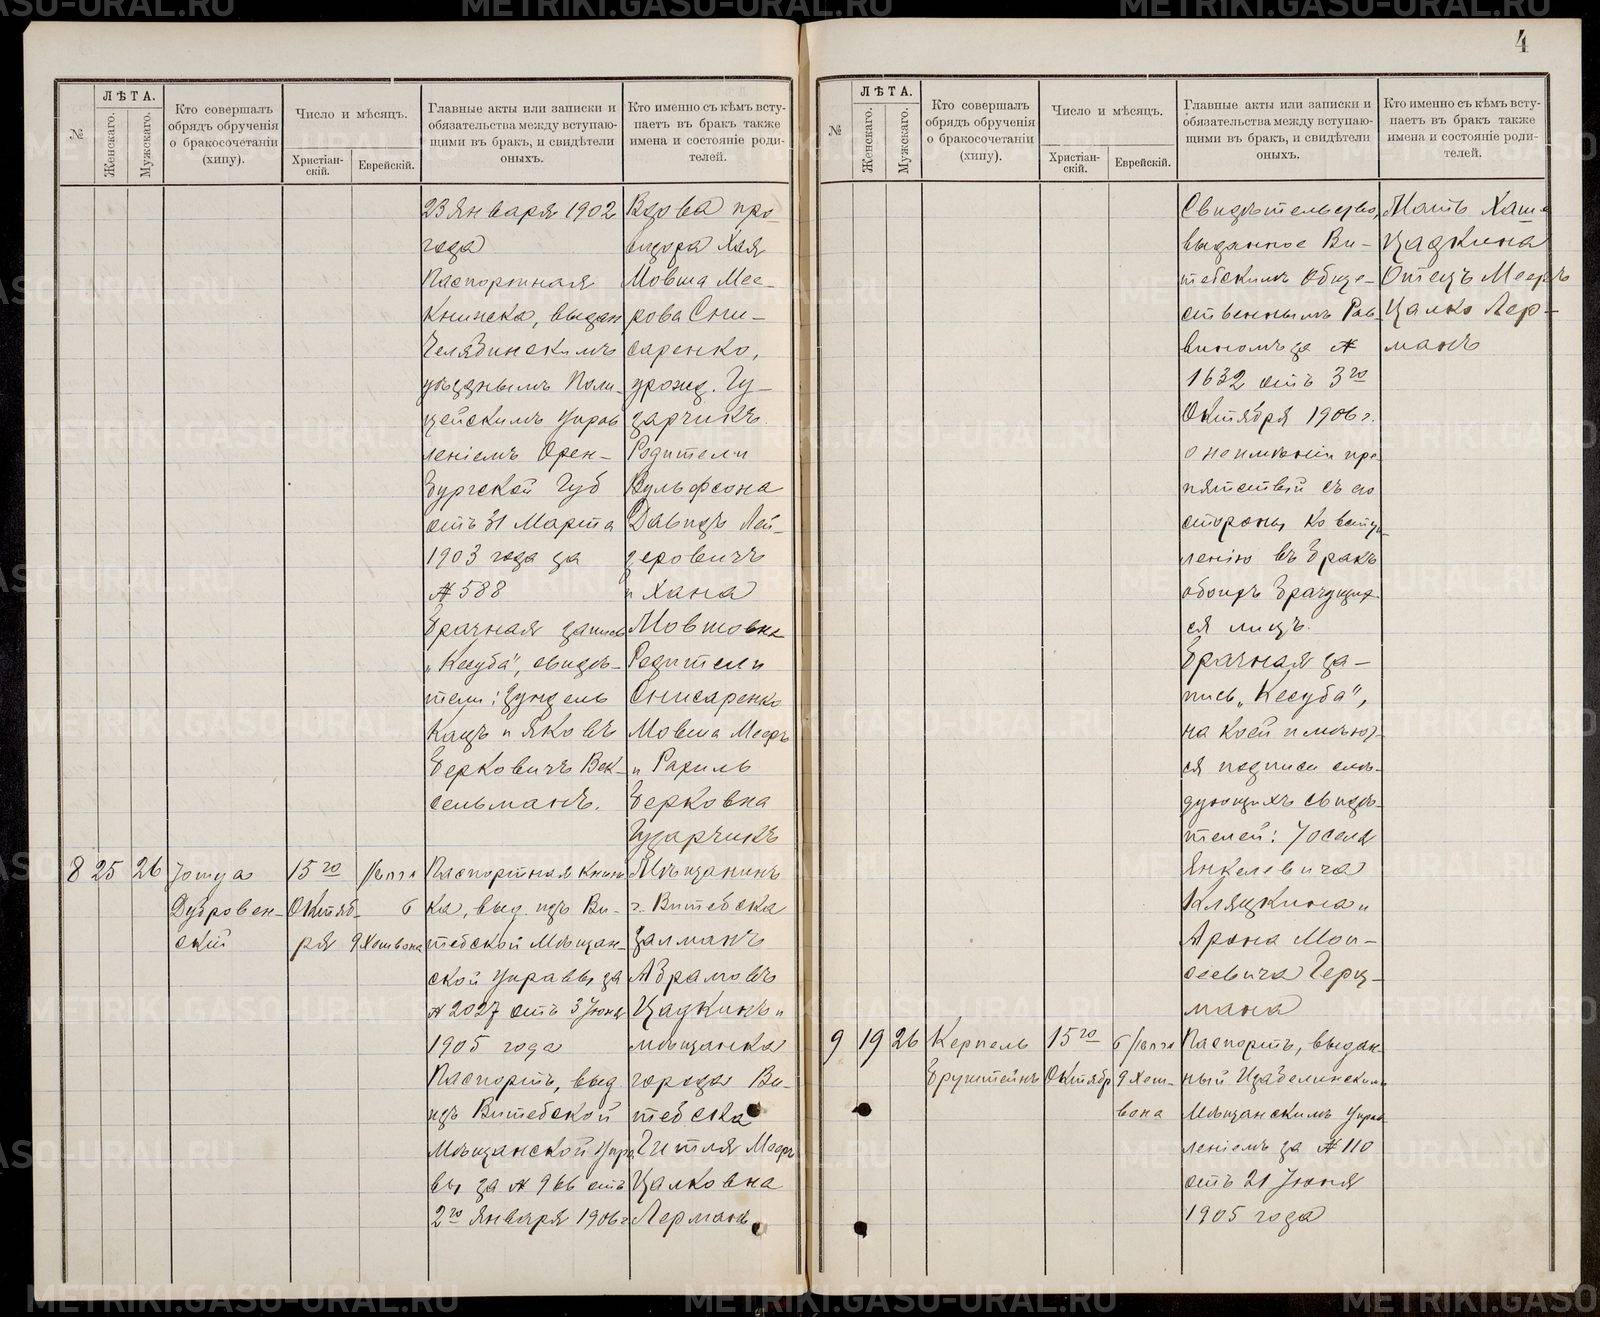 4
№
ЛѢТА.
Женскаго.
Мужскаго.
Кто совершалъ
обрядъ обрученія
о бракосочетаніи
(хипу).
Число и мѣсяцъ.
Христіан-
скій.
Еврейскій.
Главные акты или записки и
обязательства между вступаю-
щими въ бракъ, и свидѣтели
оныхъ.
Кто именно съ кѣмъ всту-
паетъ въ бракъ также
имена и состояніе роди-
телей.
23 Января 1902
года
Паспортная
Книжка, выдан
Челябинскимъ
уѣзднымъ Поли-
цейскимъ Управ
леніемъ Орен-
бургской Губ
отъ 31 Марта
1903 года за
№ 588
Брачная запись
„Кесуба", свидѣ-
тели: Зундель
Кацъ и Яковъ
Берковичъ Век-
сельманъ.
Вдова про
визора Хая
Мовша Мее-
рова Сни-
саренко,
урожд. Гу-
зарчикъ.
Родители
Вульфсона
Давидъ Лей-
зеровичъ
и Хана
Мовшовна
Родители
Снисаренко
Мовша Мееръ
и Рахиль
Берковна
Гузарчикъ
8 25 26
Іошуа
Дубровен-
скій
15го
Октяб-
ря
9 Хешвона
Паспортная Книж
ка, выд. изъ Ви-
тебской Мѣщан-
ской Управы за
№ 2027 отъ 3 Іюня
1905 года
Паспортъ, выд
изъ Витебской
Мѣщанской Упра
вы за № 966 отъ
2го Января 1906 г.
Мѣщанинъ
г. Витебска
Залманъ
Абрамовъ
Цадкинъ и
мѣщанка
города Ви-
тебска
Гитля Мееръ
Цалковна
Лерманъ
№
ЛѢТА.
Женскаго.
Мужскаго.
Кто совершалъ
обрядъ обрученія
о бракосочетаніи
(хипу).
Число и мѣсяцъ.
Христіан-
скій.
Еврейскій.
Главные акты или записки и
обязательства между вступаю-
щими въ бракъ, и свидѣтели
оныхъ.
Кто именно съ кѣмъ всту-
паетъ въ бракъ также
имена и состояніе роди-
телей.
Свидѣтельство,
выданное Ви-
тебскимъ Обще-
ственнымъ Рав-
виномъ за №
1632 отъ 3го
Октября 1906 г.
о неимѣніи пре-
пятствій съ его
стороны ко всту-
пленію въ бракъ
обоихъ брачущих-
ся лицъ.
Брачная за-
пись „Кесуба",
на коей имѣют-
ся подписи слѣ-
дующихъ свидѣ-
телей: Іоселя
Янкелевича
Кляцкина и
Арона Мои-
сеевича Герц-
мана
Мать Хаша
Цадкина
Отецъ Мееръ
Цалко Лер-
манъ
9 19 26
Керпель
Брунштейнъ
15го
Октябр
9 Хеш-
вона
Паспортъ, выдан-
ный Изабелинским
Мѣщанскимъ Управ
леніемъ за № 110
отъ 21 Іюня
1905 года
METRIKI.GASO-URAL.RU